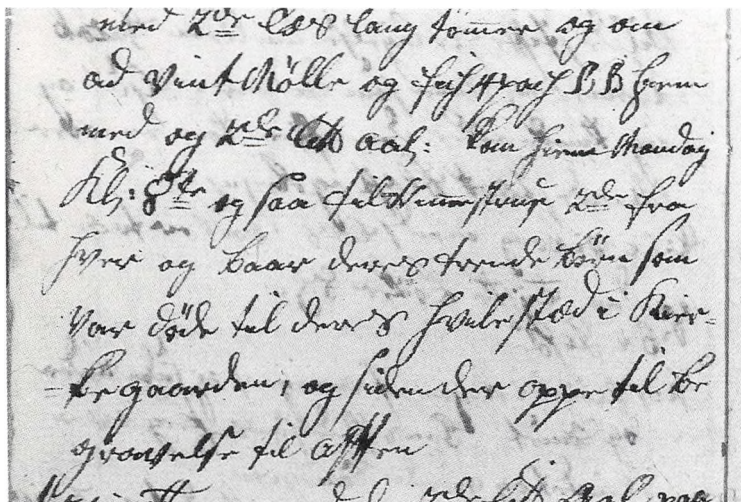 med 2de læs lang tømmer og om
ad Vint Mølle og fich 4 pach B B hiem
med og 2de lett aal: kom hiem Mandag
Kl: 8te og saa til Vinnestrup 2de fra
hver og baar deres trende børn som
var døde til deres hvile stæd i Kier-
ke gaarden, og siden der oppe til be
gravelse til afften
2de lett